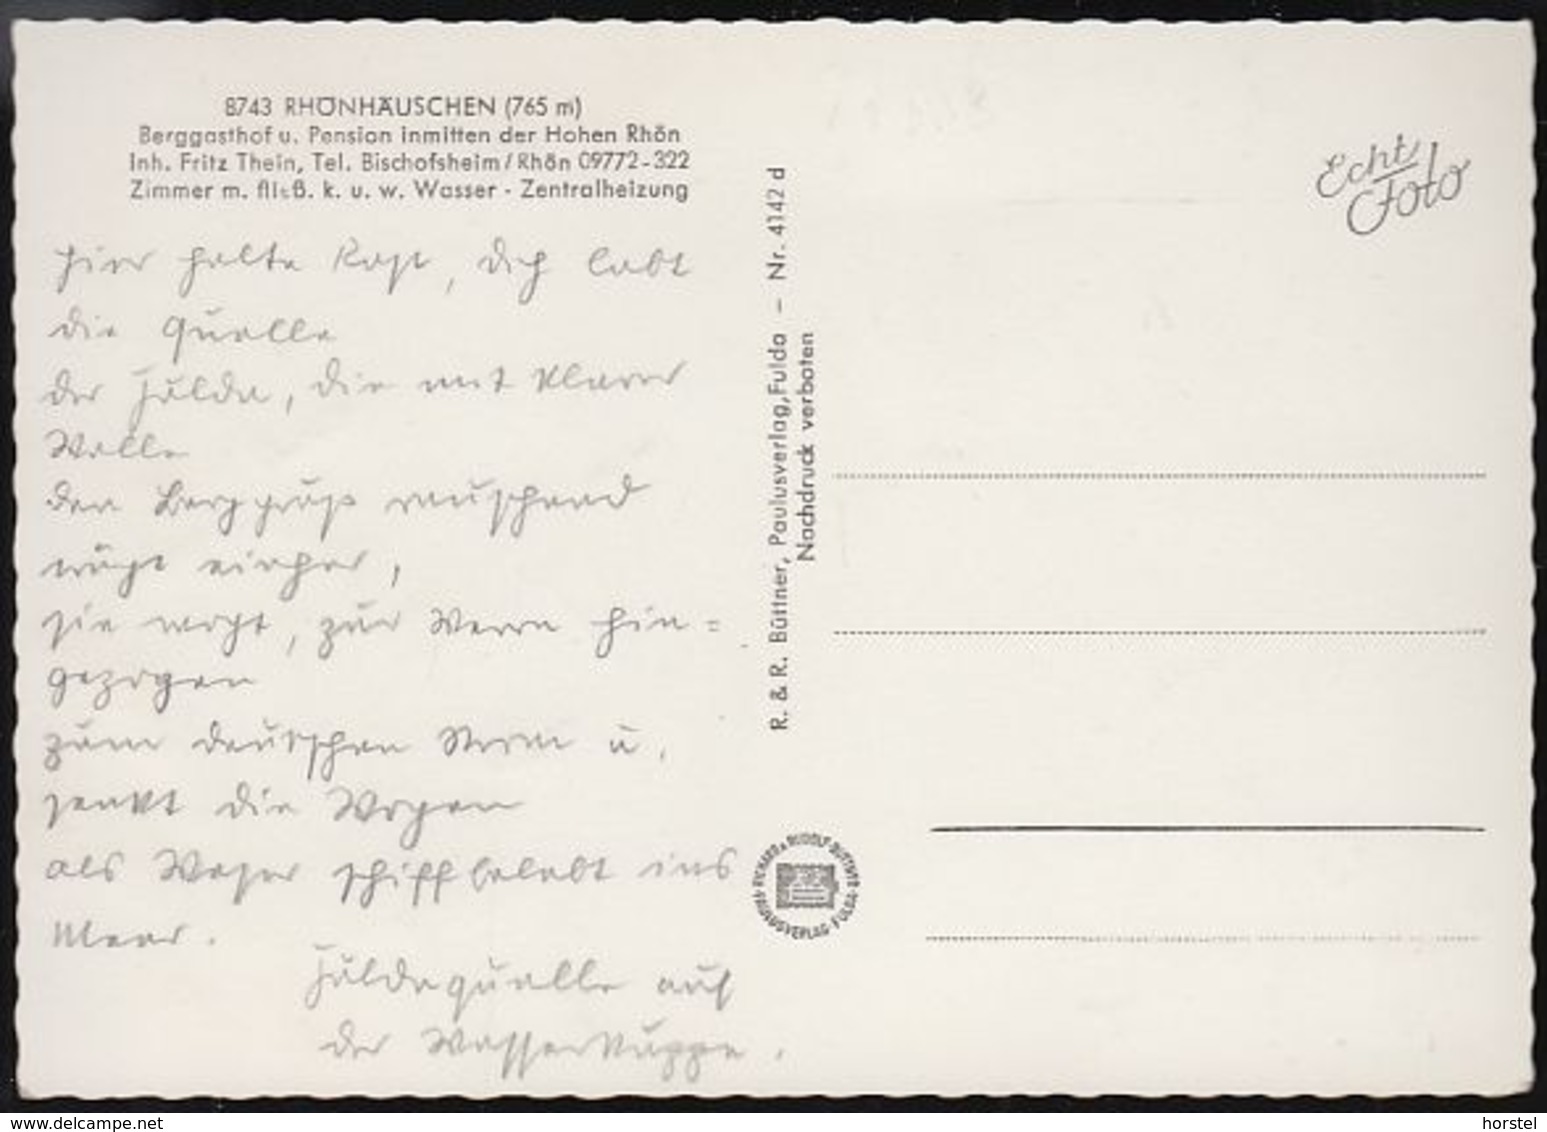 8743 RHÖNHÄUSCHEN (765 m)
Berggasthof u. Pension inmitten der Hohen Rhön
Inh. Fritz Thein, Tel. Bischofsheim/Rhön 09772-322
Zimmer m. fließ. k. u. w. Wasser - Zentralheizung
Hier halte Rast, dich labt
die Quelle
der Fulda, die mit klarer
Welle
den Berggruß rauschend
trägt einher,
sie wogt, zur Werra hin=
gezogen
zum deutschen Strom u.
senkt die Wogen
als Weser schiffbelebt ins
Meer.
Fuldaquelle auf
der Wasserkuppe.
R. & R. Büttner, Paulusverlag, Fulda – Nr. 4142 d
Nachdruck verboten
Echt
Foto
RICHARD & RUDOLF BÜTTNER
PAULUSVERLAG · FULDA
www.delcampe.net
horstel